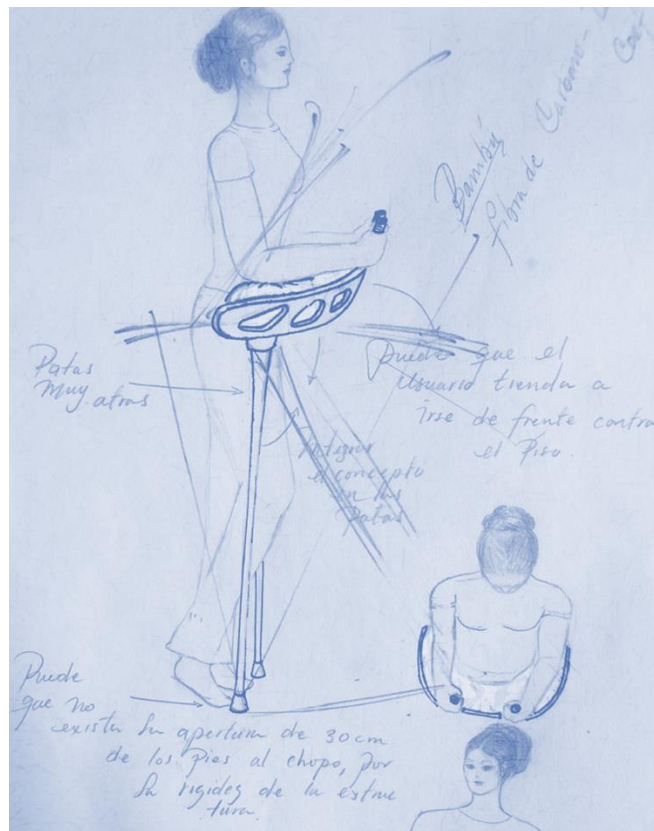 Bambú
fibra de Carbono -
Patas
Muy atras
Puede que el
Usuario tienda a
irse de frente contra
el Piso.
Integrar
el concepto
en las
Patas
Puede
que no
exista la apertura de 30 cm
de los pies al chopo, por
la rigidez de la estruc
tura.